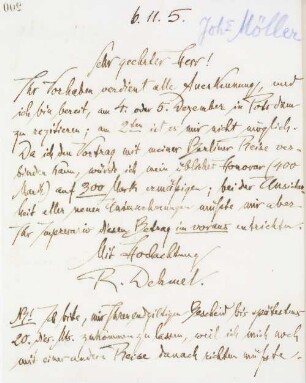 002
6.11.5.
Joh. Möller
Sehr geehrter Herr!
Ihr Vorhaben verdient alle Anerkennung, und
ich bin bereit, am 4. oder 5. Dezember in Potsdam
zu rezitieren; am 2ten ist es mir nicht möglich.
Da ich den Vortrag mit meiner Berliner Reise ver-
binden kann, würde ich mein übliches Honorar (400
Mark) auf 200 Mark ermäßigen; bei der Unsicher-
heit aller neuen Unternehmungen müßte mir aber
Ihr diesen Betrag im voraus entrichten.
Mit Hochachtung
R. Dehmel.
NB! Ich bitte, mir Ihren endgiltigen Bescheid bis spätestens
20. Nov. zukommen zu lassen, weil ich mich noch
mit einer andern Reise danach richten müßte.